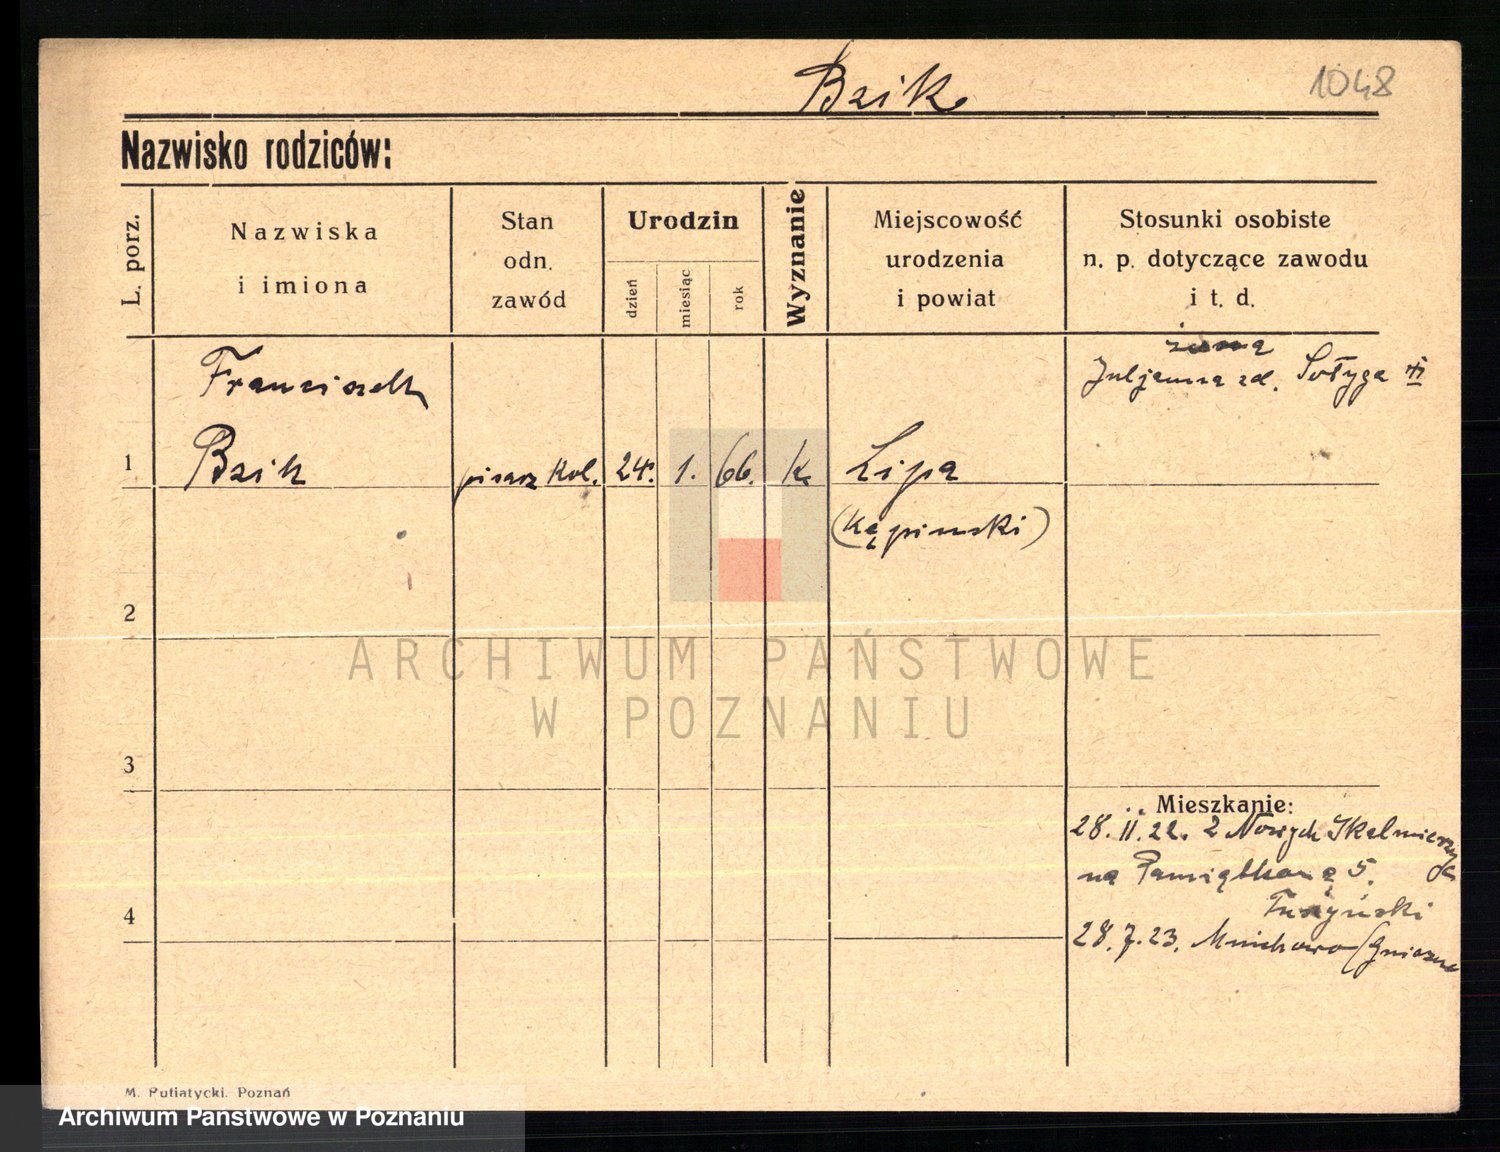 Bzik
1048
Nazwisko rodziców:
L. porz.
Nazwiska
i imiona
Stan
odn.
zawód
Urodzin
dzień
miesiąc
rok
Wyznanie
Miejscowość
urodzenia
i powiat
Stosunki osobiste
n. p. dotyczące zawodu
i t. d.
żona
Juljanna zd. Sołyga
Franciszek
1 Bzik pisarz kol. 24. 1. 66. k. Lipa
(Kępinski)
2
ARCHIWUM PAŃSTWOWE
W POZNANIU
3
Mieszkanie:
28. 11. 22. z Nowych Skalmierzyc
na Pamiątkowa 5.
4
28. 7. 23. Mnichowo (Gniezno
M. Putiatycki. Poznań
Archiwum Państwowe w Poznaniu